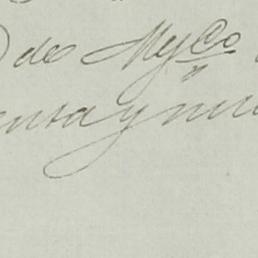 de Myco
enta y nu